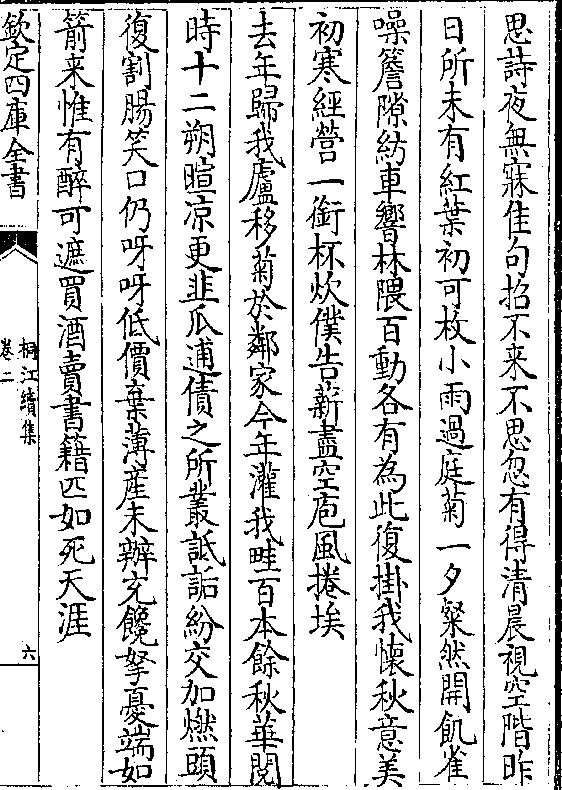 思詩夜無寐佳句招不来不思忽有得清晨視空階昨
日所未有紅葉初可枚小雨過庭菊一夕粲然開飢雀
噪簷隙紡車響林隈百動各有為此復掛我懷秋意美
初寒經營一銜杯炊僕告薪盡空庖風捲埃
去年歸我廬移菊於鄰家今年灌我畦百本餘秋華閱
時十二朔暄凉更韭瓜逋債之所叢詆詬紛交加燃頭
復割腸笑口仍呀呀低價棄薄産未辦充饞拏憂端如
箭来惟有醉可遮買酒賣書籍匹如死天涯
欽定四庫全書
桐江續集
卷二
六